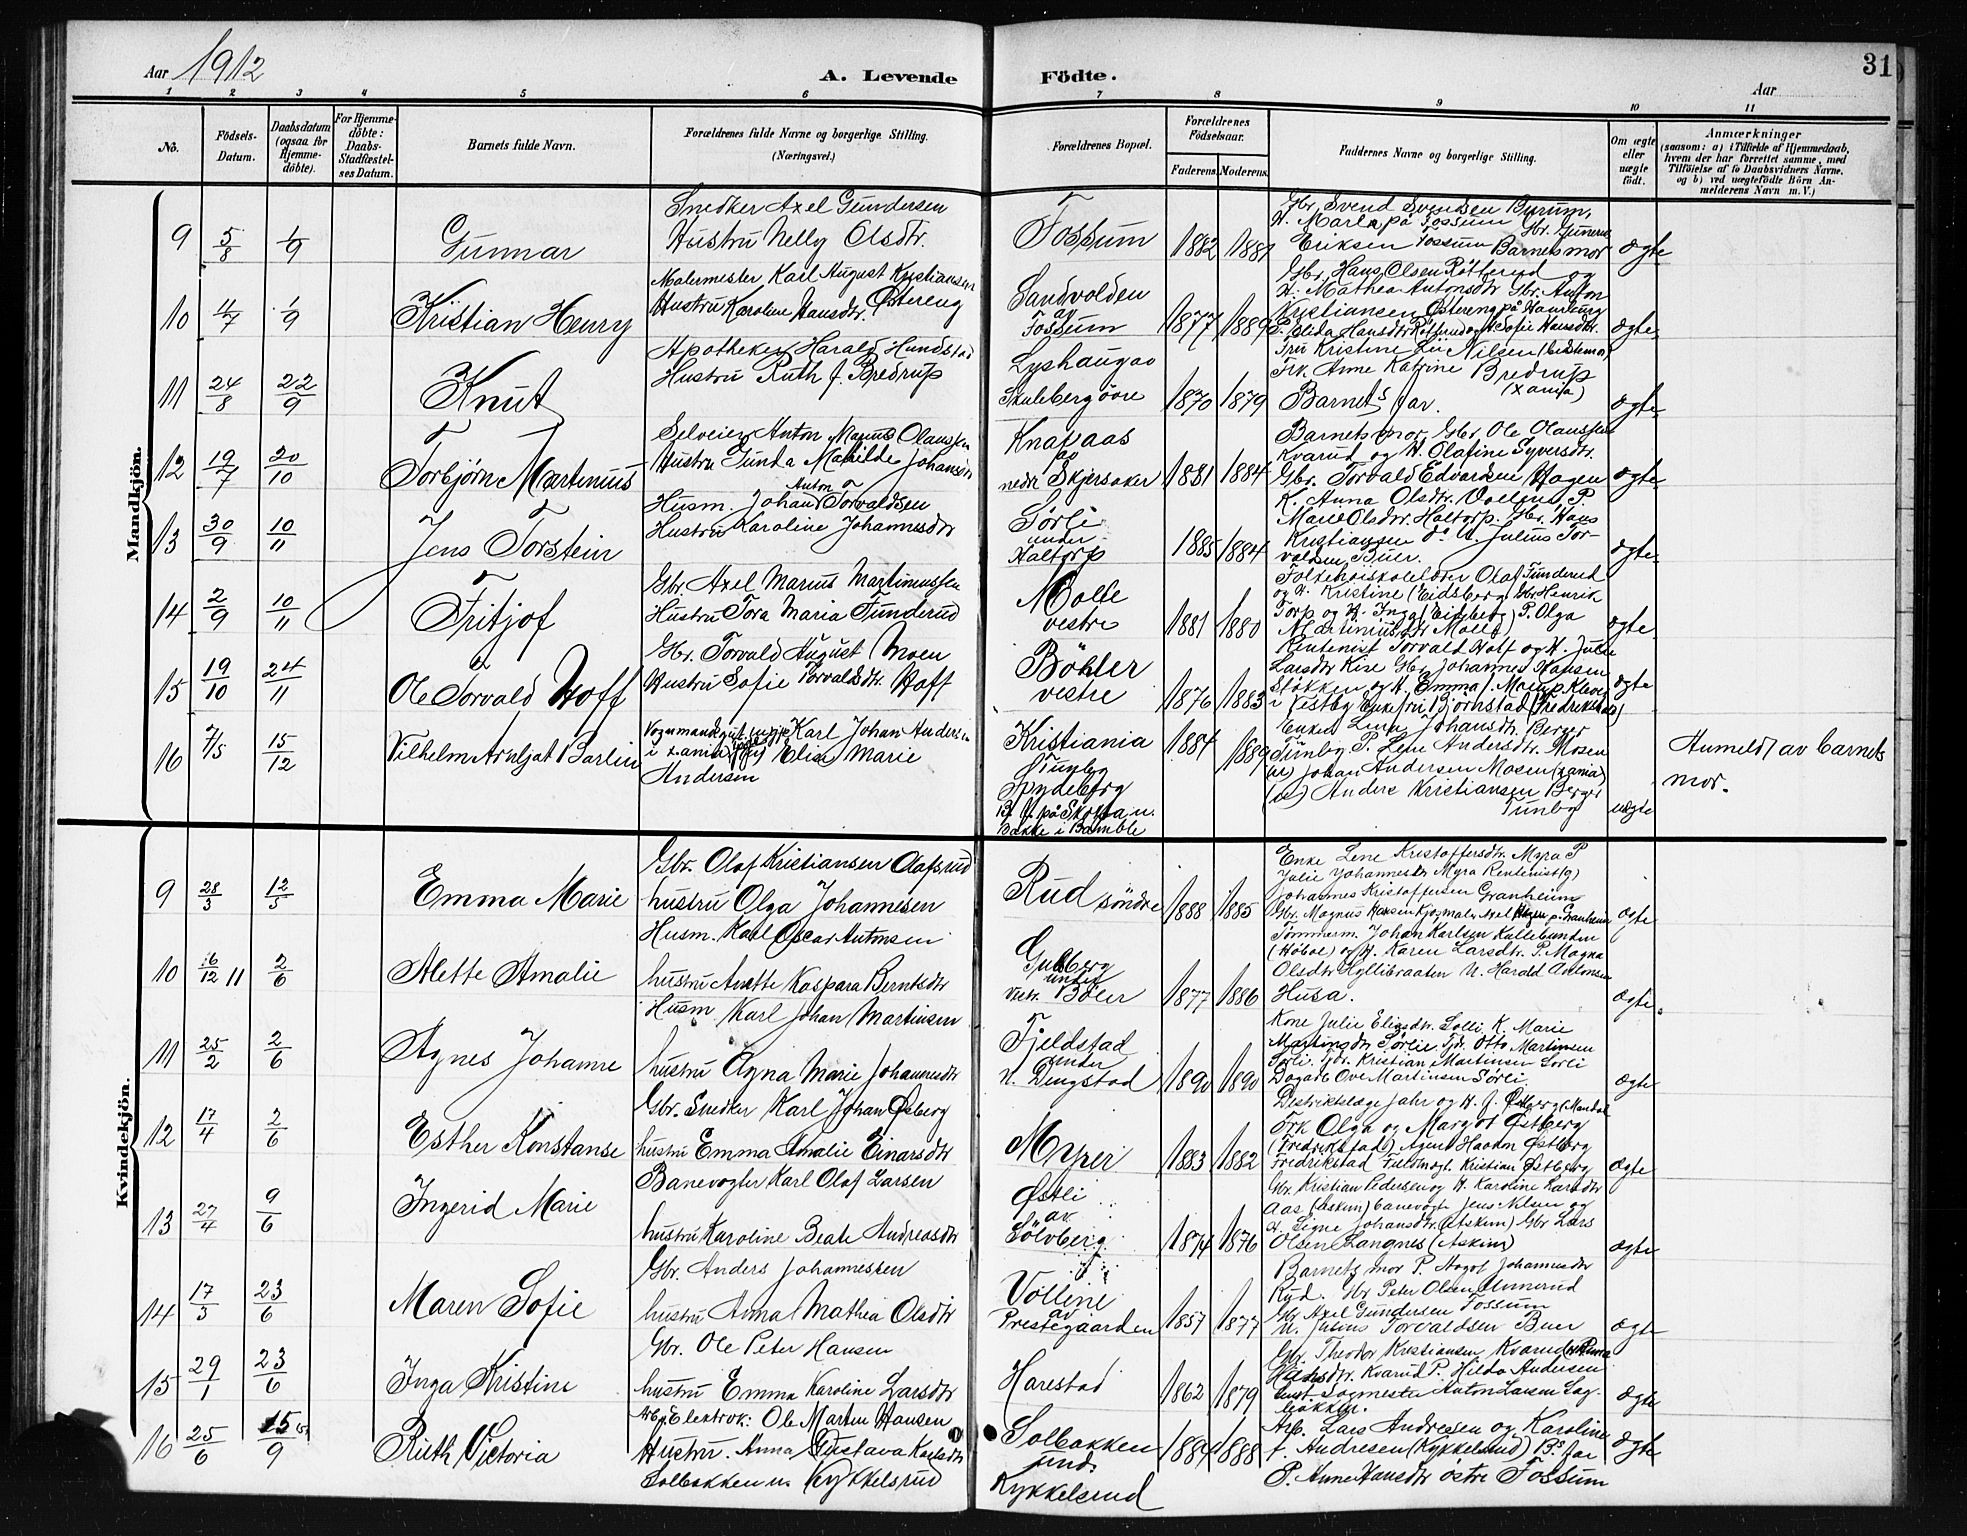 Aar 1912
A. Levende Födte.
Aar
31
1 2 3 4 5 6 7 8 9 10 11
No.
Födsels-Datum.
Daabsdatum (ogsaa for Hjemme-döbte).
For Hjemme-döbte: Daabs-Stadfæstel-ses Datum.
Barnets fulde Navn.
Forældrenes fulde Navne og borgerlige Stilling.
(Næringsvei.)
Forældrenes Bopæl.
Forældrenes Födselsaar.
Faderens. Moderens.
Faddernes Navne og borgerlige Stilling.
Om ægte eller uægte födt.
Anmærkninger
(saasom: a) i Tilfælde af Hjemmedaab,
hvem der har forrettet samme, med
Tilföielse af to Daabsvidners Navne.
og b) ved uægtefödte Börn An-
melderens Navn m. V.)
Mandkjön.
9 5/8 1/9 Gunnar
Snedker Axel Gundersen
Hustru Nelly Olsdtr.
Fossum 1882 1881
Gbr. Svend Svendsen Burum,
H. Marla på Fossum Gbr. Gunerus
Eriksen Fossum Barnets mor
ægte
10 4/7 1/9 Kristian Henry
Malermester Karl August Kristiansen
Hustru Karoline Hansdtr. Östereng
Sandvolden
av
Fossum 1877 1889
Gbr. Hans Olsen Rötterud og
H. Mathea Antonsdtr Gbr. Anton
Kristiansen Östereng på Hamburg
P. Olida Hansdtr Rötterud og Sofie Hansdtr.
ægte
11 24/8 22/9 Knut
Apotheker Harald Hundstad
Hustru Ruth f. Bredrup
Lyshaugao
Skulebergövre 1870 1879
Fru Kristine Lii Nilsen
Frk. Anne Katrine Bredrup
(Xania)
Barnets far.
ægte
12 19/7 20/10 Torbjörn Martinius
Selveier Anton Marius Olaussen
Hustru Gunda Mathilde Johansdtr
Knapaas
av
nedr Skjersaker 1881 1884
Barnets mor, Gbr. Ole Olaussen
Kvarud og H. Olafine Syversdtr.
Gbr. Torvald Edvardsen Hagen
ægte
13 30/9 10/11 Jens Torstein
Husm. Johan Anton Torvaldsen
Hustru Karoline Johannesdtr
Sörli
under
Haltorp 1885 1884
K. Anna Olsdtr. Vollene P.
Marie Olsdtr. Haltorp. Gbr. Hans
Kristiansen do U. Julius Tor-
valdsen Buer.
ægte
14 2/9 10/11 Fritjof
Gbr. Axel Marius Martiniussen
Hustru Tora Maria Funderud
Molle
vestre 1881 1880
Folkehöiskoleleder Olaf Funderud
og H. Kristine (Eidsberg) Gbr Henrik
Torp og H. Inga (Eidsberg) P. Olga
Martiniusdtr Molle,
ægte
15 19/10 24/11 Ole Torvald Hoff
Gbr. Torvald August Moen
Hustru Sofie Torvaldsdtr. Hoff
Böhler
vestre 1876 1883
Rentenist Torvald Hoff og H. Julie
Larsdtr Kise Gbr Johannes Hansen
Stökken og H. Emma f. Moen p Kleven
i Vestby Enkefru Björnstad (Fredrikshald)
ægte
16 7/5 15/12 Vilhelm Arnljot Barlin
Vognmandsgut Karl Johan Andersen
i Xania Elise Marie
Andersen
Kristiania 1884 1889
Tunby
Spydeberg
Bakke i Bamble
Enken Lina Johansdtr. Berger
Tunby P. Lene Andersdtr. Mosen
Johan Andersen Mosen (Xania)
Anders Kristiansen Berger
Tunby
uægte
Anmeldt av barnets
mor.
Kvindekjön.
9 28/3 12/5 Emma Marie
Gbr. Olaf Kristiansen Olafsrud
hustru Olga Johannesen
Rud söndre 1888 1885
Enke Lene Kristoffersdtr. Myra P
Julie Johannesdtr Myra Rentenist (g)
Johannes Kristoffersen Granheim
Gbr. Magnus Hansen
ægte
10 6/12 11 2/6 Alette Amalie
Husm. Karl Oscar Antonsen
hustru Anette Kaspara Berntsdtr
Gulberg
under
Vestr. Böler 1877 1886
Tömmerm. Johan Karlsen Kullebunden
(Höböl) og H. Karen Larsdtr. P. Magna
Olsdtr Hyllibraaten U. Harald Antonsen
Husa.
ægte.
11 25/2 2/6 Agnes Johanne
Husm Karl Johan Martinsen
hustru Agna Marie Johannesdtr
Fjeldstad
under
N. Dingstad 1890 1890
Kone Julie Eliasdtr. Solli K. Marie
Martinsdtr Sörlie Gdr. Otto Martinsen
Sörli. Gdr. Kristian Martinsen Sörli
Dagarb Ove Martinsen Sörli.
ægte
12 17/4 2/6 Esther Konstanse
Gbr. Snedker Karl Johan Östberg
hustru Emma Amalie Einarsdtr
Myrer 1883 1882
Destriktslæge Jahr og H. f. Östberg (Mandal
Frk Olga og Margot Östberg
(Fredrikstad) Agent Haakon Östberg
Fredrikstad Fuldmægt. Kristian Östberg
ægte
13 27/4 9/6 Ingerid Marie
Banevogter Karl Olaf Larsen
hustru Karoline Beate Andreasdtr
Östli
av
Sölvberg 1874 1876
Gbr. Kristian Pedersen og H. Karoline Larsdtr
Aas (Askim) banevogt Jens Nilsen og
H. Signe Johansdtr. (Askim) Gbr Lars
Olsen Langnes (Askim)
ægte
14 17/3 23/6 Maren Sofie
Gbr. Anders Johannessen
hustru Anna Mathea Olsdtr
Völlene
av
Prestegaarden 1857 1877
Barnets mor P. Aagot Johannesdtr
Rud. Gbr Peter Olsen Unnerud
Gbr Axel Gundersen Fossum
U. Julius Torvaldsen Buer
ægte
15 29/1 23/6 Inga Kristine
Gbr. Ole Peter Hansen
hustru Emma Karoline Larsdtr
Harestad 1862 1879
Gbr. Theodor Kristiansen Kvarud
Kvarud P. Hilda Andersen
Sagmester Anton Larsen Sag-
ægte
16 25/6 15/9 Ruth Victoria
Arb. Elektrok: Ole Martin Hansen
Hustru. Anna Gustava Karlsdtr
Solbakken u. Kykkelsrud
Solbakken
und.
Kykkelsrud 1884 1888
Arb. Lars Andresen og Karoline
f. Andresen (Kykkelsrud) Bs far
P. Anne Hansdtr östre Fossum
ægte